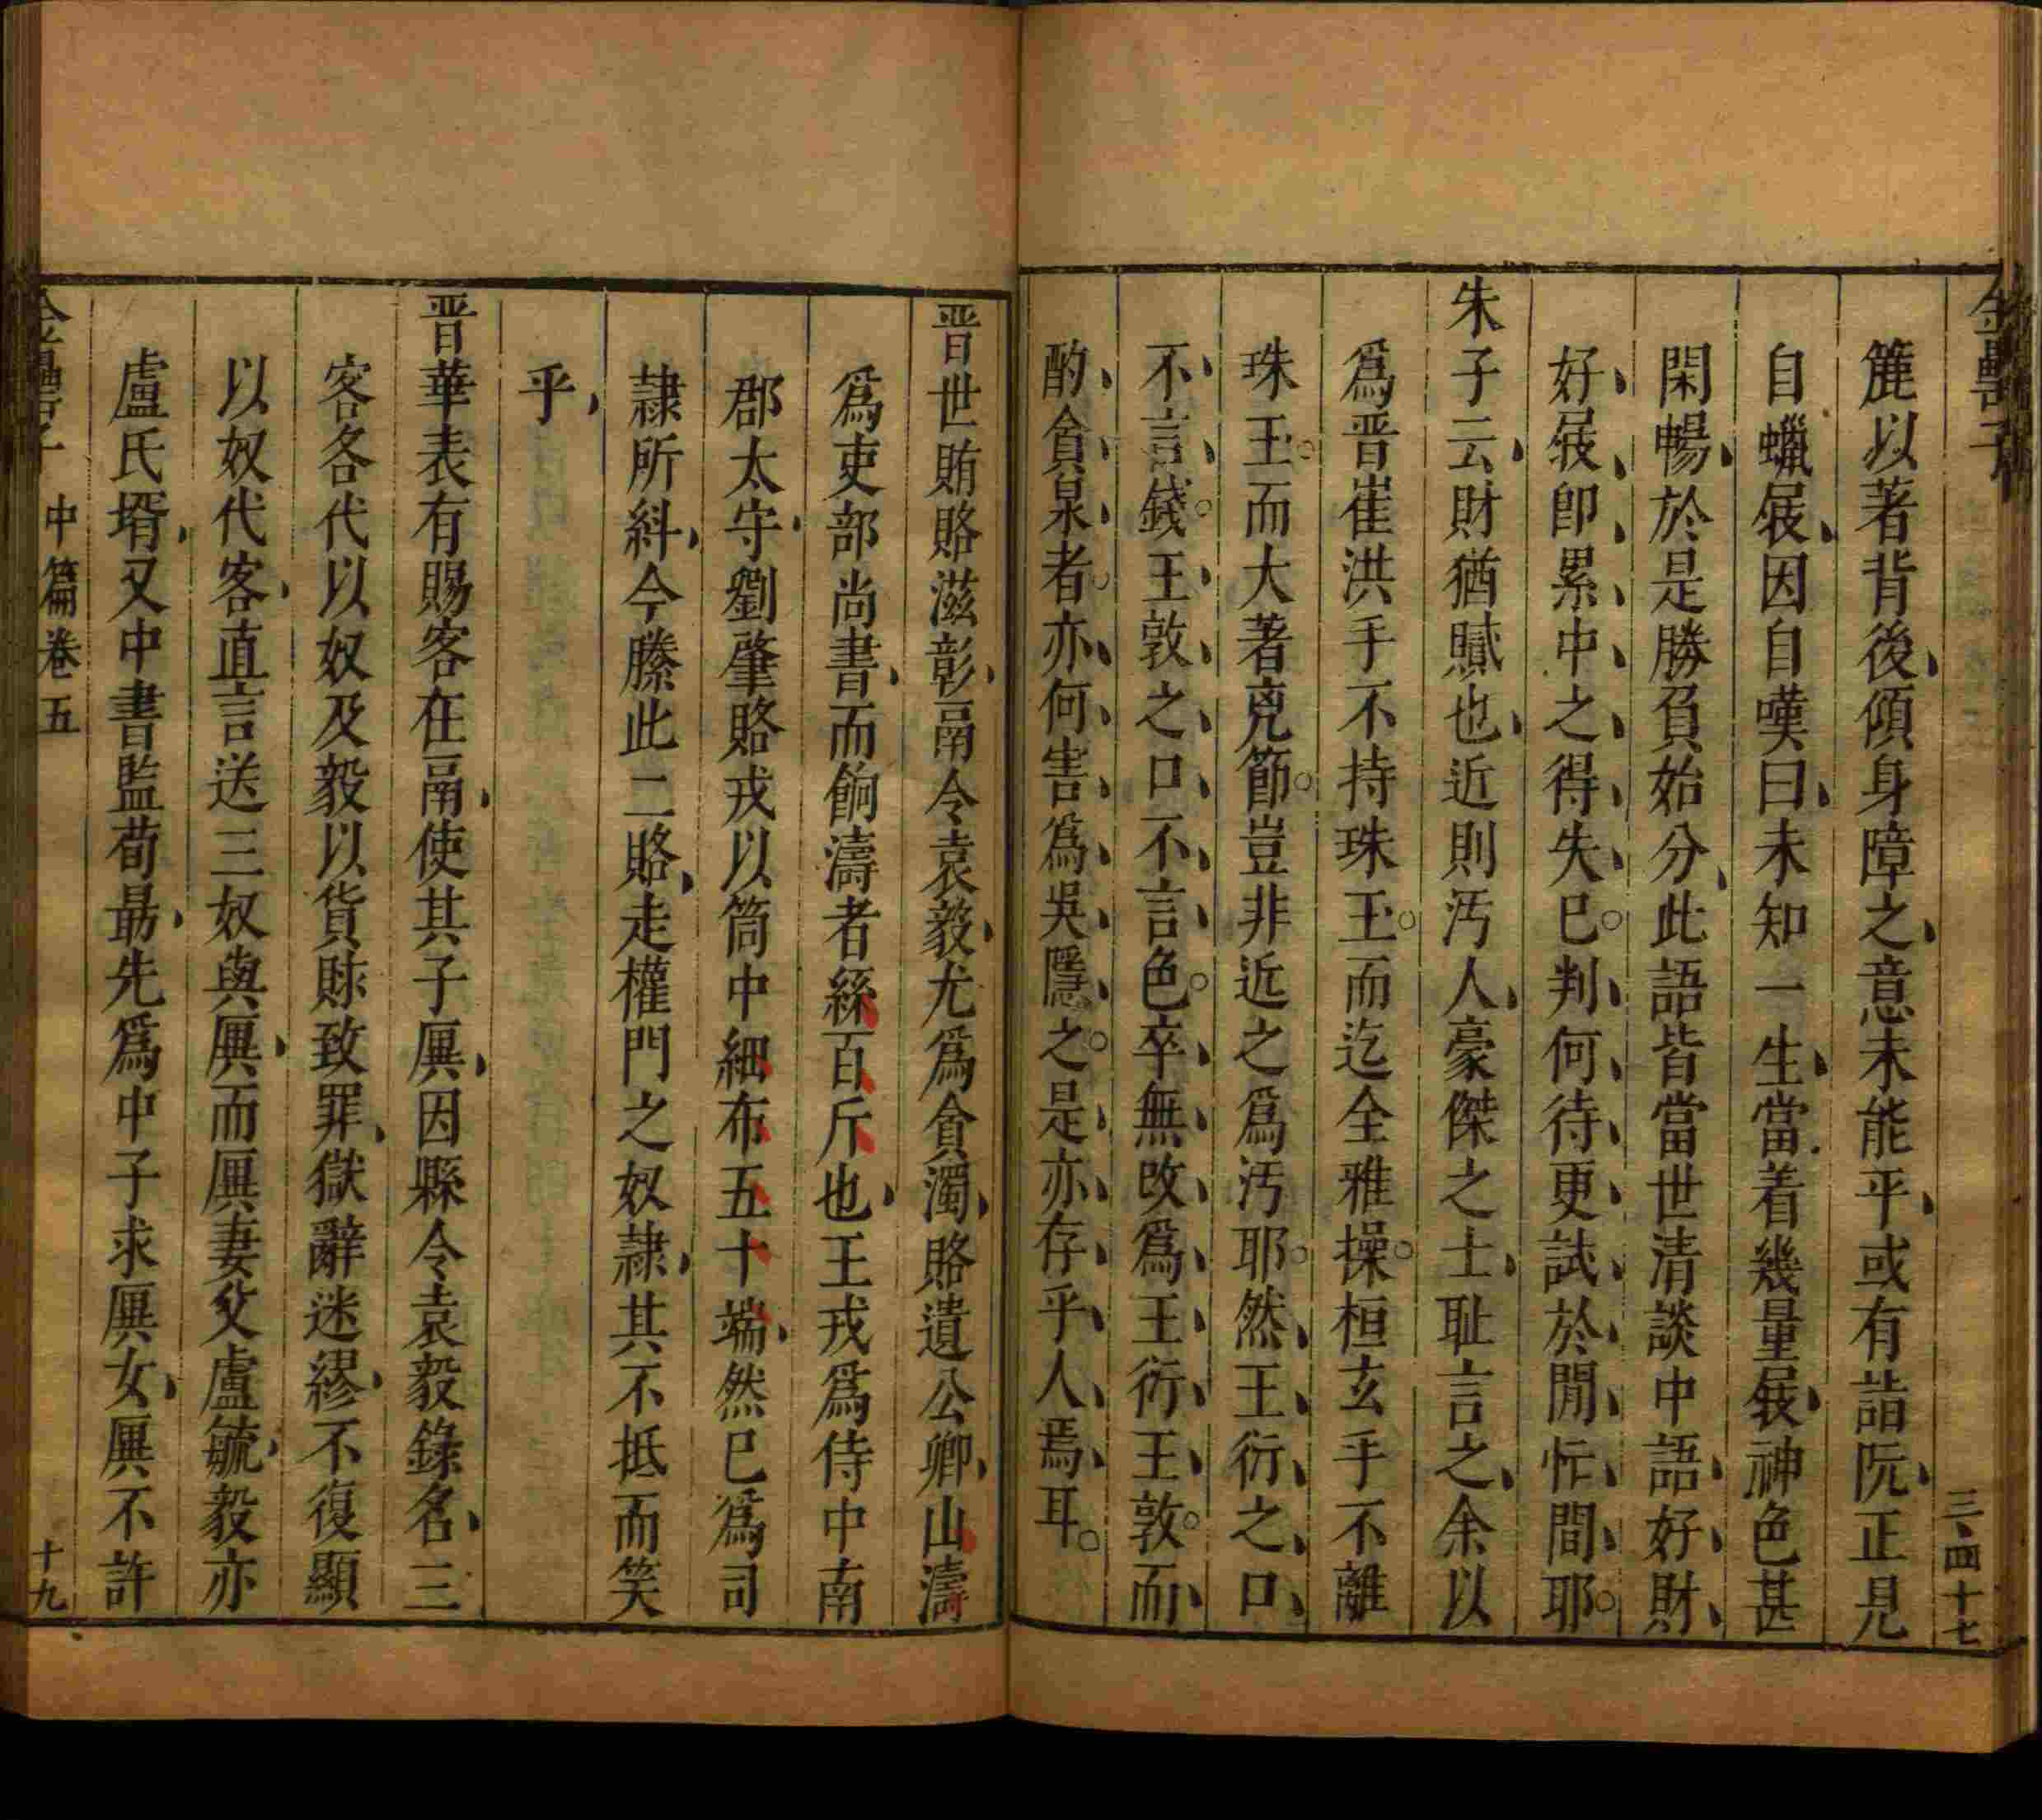 金罍子
三四十七
簏以著背後傾身障之意未能平或有詣阮正見
自蠟屐因自嘆曰未知一生當着幾量屐神色甚
閑暢於是勝負始分此語皆當世清談中語好財
好屐卽累中之得失已判何待更試於閒忙間耶
朱子云財猶膩也近則汚人豪傑之士耻言之余以
爲晉崔洪手不持珠玉而迄全雅操桓玄手不離
珠玉而大著兇節豈非近之爲汚耶然王衍之口
不言錢王敦之口不言色卒無改爲王衍王敦而
酌貪泉者亦何害爲吳隱之是亦存乎人焉耳
晉世賄賂滋彰鬲令袁毅尤爲貪濁賂遺公卿山濤
爲吏部尚書而餉濤者絲百斤也王戎爲侍中南
郡太守劉肇賂戎以筒中細布五十端然已爲司
隷所糾今縢此二賂走權門之奴隷其不抵而笑
乎
晉華表有賜客在鬲使其子廙因縣令袁毅錄名三
客各代以奴及毅以貨賕致罪獄辭迷繆不復顯
以奴代客直言送三奴與廙而廙妻父盧毓毅亦
盧氏壻又中書監荀勗先爲中子求廙女廙不許
金罍子 中篇卷五
十九